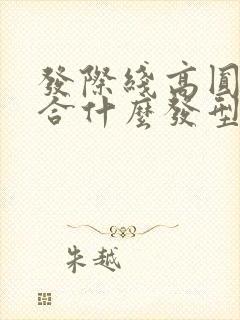 發際綫高圓
合什麼發型
朱越